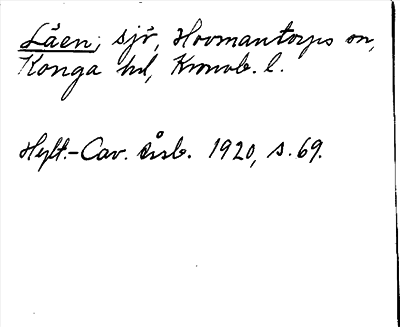 Låen, sjö, Hovmantorps sn,
Konga hd, Kronob. l.
Hylt.-Cav. årsb. 1920, s. 69.